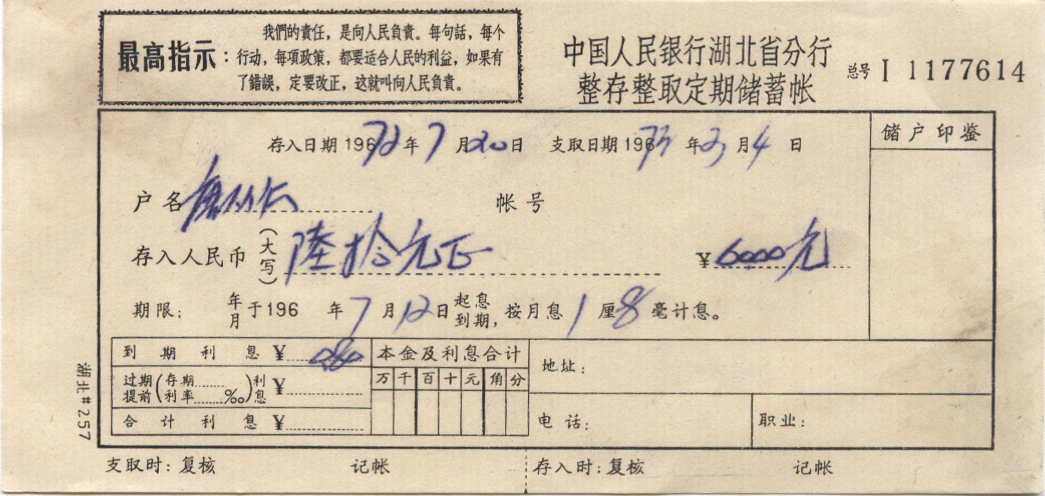 最高指示：
我們的責任，是向人民負責。每句話，每个
行动，每項政策，都要适合人民的利益，如果有
了錯誤，定要改正，这就叫向人民負責。
中国人民银行湖北省分行
整存整取定期储蓄帐
总号 I 1177614
存入日期196 72年7月20日 支取日期196 73年2月4日
储户印鉴
户名 帐号
存入人民币(大写)陸拾元正 ¥6000元
期限： 年月 于196 年7月12日 起息到期，按月息1厘8毫计息。
到期利息¥ 0.80
本金及利息合计
万千百十元角分
过期提前(存期 利率 ‱)利息¥
合计利息¥
地址：
电话：
职业：
湖北#257
支取时：复核 记帐 存入时：复核 记帐